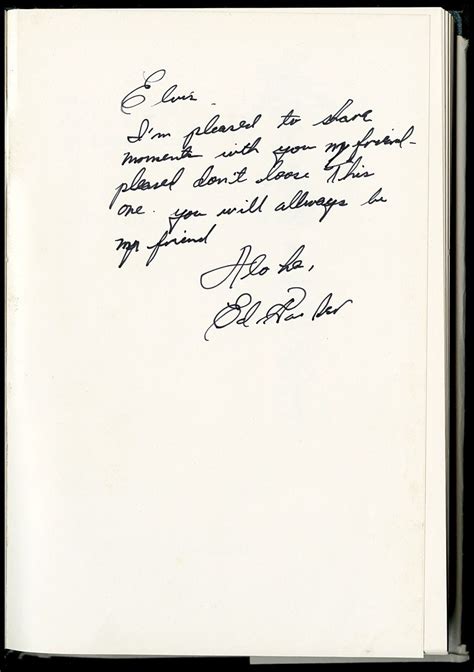 Elvis.
I'm pleased to share
moments with you my friend -
pleased don't loose This
one. you will allways be
my friend
Aloha,
Ed Parker